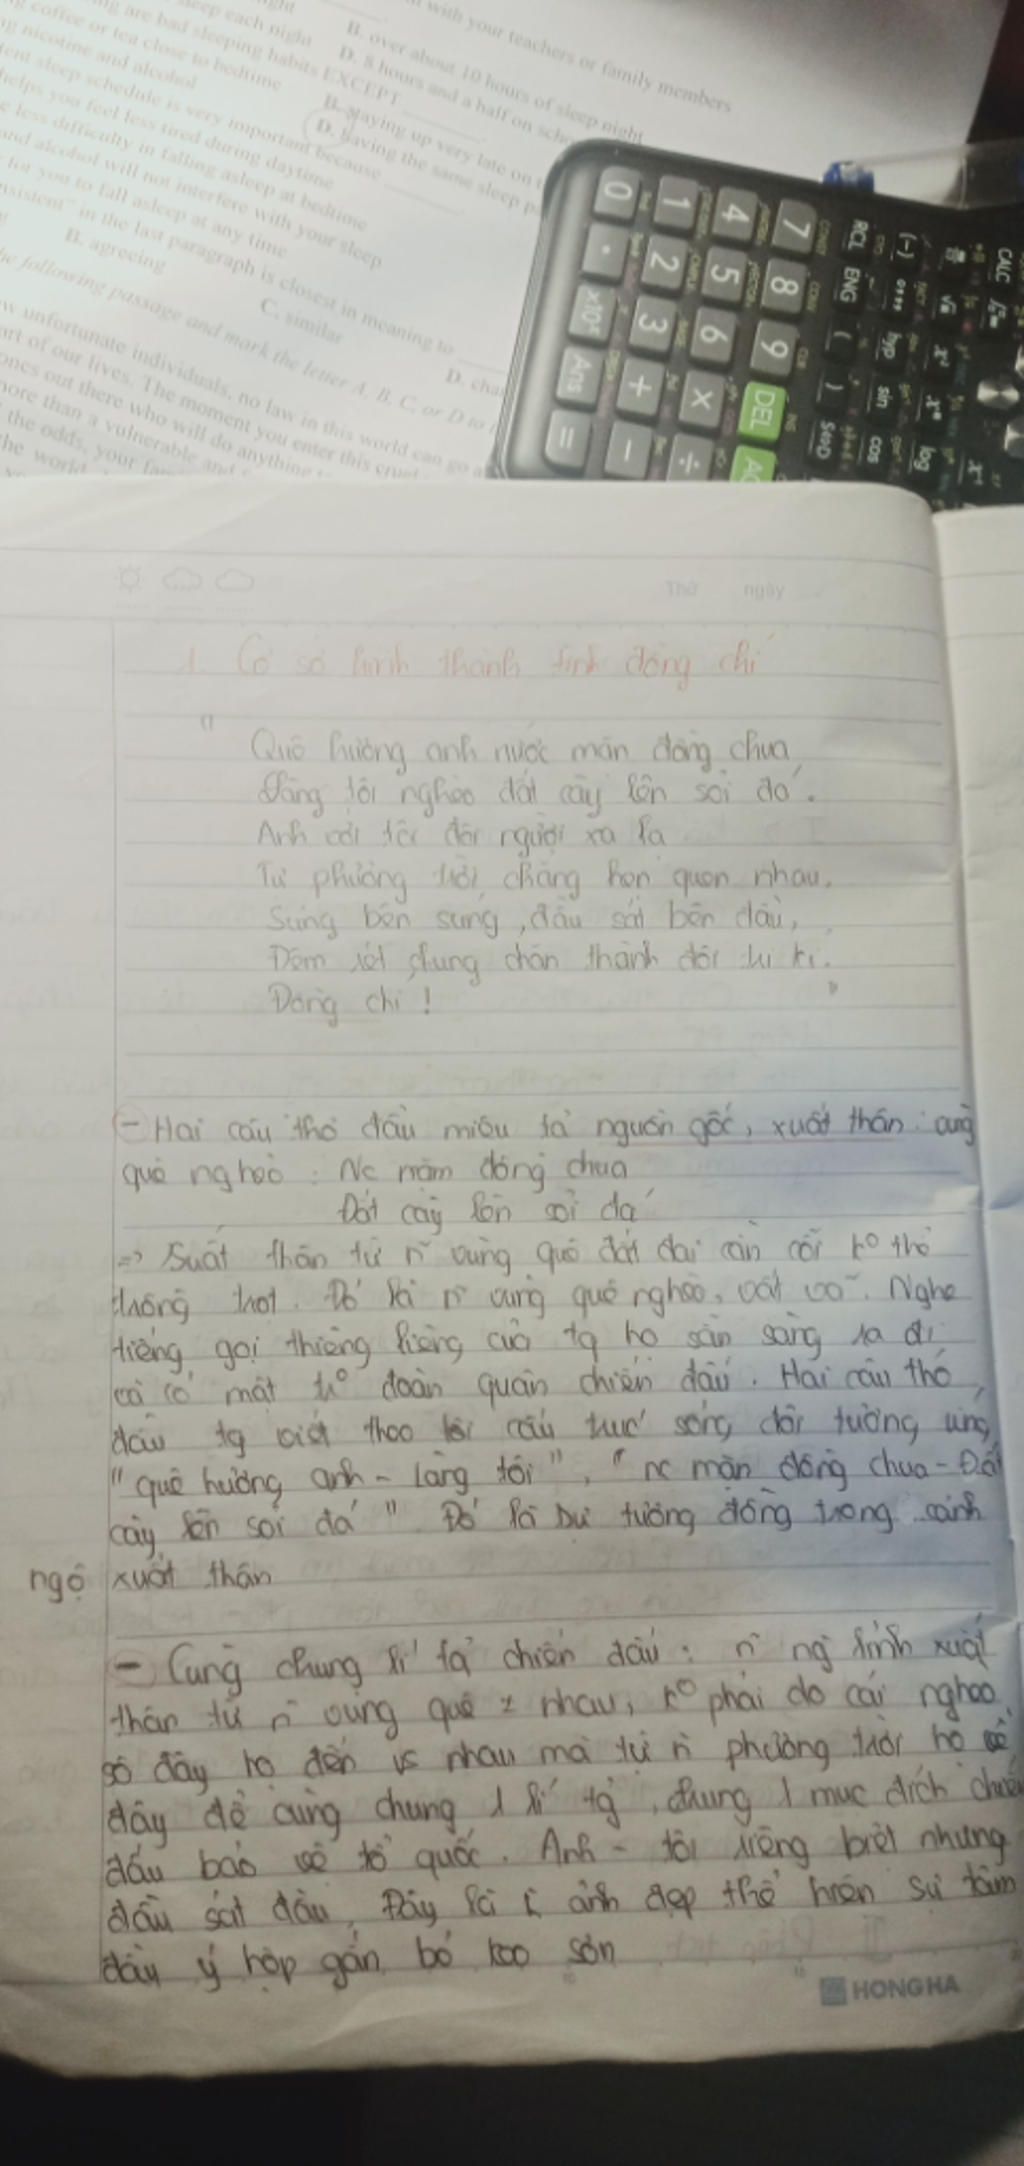 with your teachers or family members
B. over about 10 hours of sleep night
sleep each night
D. 8 hours and a half on
are bad sleeping habits EXCEPT
coffee or tea close to bedtime
B. staying up very late on
nicotine and alcohol
D. having the same sleep
sleep schedule is very important because
helps you feel less tired during daytime
less difficulty in falling asleep at bedtime
and alcohol will not interfere with your sleep
for you to fall asleep at any time
in the last paragraph is closest in meaning to
B. agreeing
C. similar
D.
following passage and mark the letter A, B, C, or D to
unfortunate individuals, no law in this world can go
of our lives. The moment you enter this
ones out there who will do anything
more than a vulnerable and
the odds, your
the world
CALC
(-) hyp
RCL ENG ( ) S⇔D
sin cos log
7 8 9 DEL AC
4 5 6 × ÷
1 2 3 + −
0 . ×10ˣ Ans =
Thứ ngày
1. Cơ sở hình thành tình đồng chí
" Quê hương anh nước mặn đồng chua
Làng tôi nghèo đất cày lên sỏi đá.
Anh với tôi đôi người xa lạ
Từ phương trời chẳng hẹn quen nhau,
Súng bên súng, đầu sát bên đầu,
Đêm rét chung chăn thành đôi tri kỉ.
Đồng chí ! "
- Hai câu thơ đầu miêu tả nguồn gốc, xuất thân : vùng
quê nghèo : Nc mặn đồng chua
Đất cày lên sỏi đá
=> Suất thân từ n~ vùng quê đất đai cằn cỗi k° thể
trồng trọt. Đó là n~ vùng quê nghèo, vất vả. Nghe
tiếng gọi thiêng liêng của tq họ sẵn sàng ra đi
và có mặt tr° đoàn quân chiến đấu. Hai câu thơ
đầu tg viết theo lối cấu trúc sóng đôi tương ứng,
" quê hương anh - làng tôi ", " nc mặn đồng chua - Đất
cày lên sỏi đá " Đó là sự tương đồng trong cảnh
ngộ xuất thân
- Cùng chung lí tg chiến đấu : n~ ng lính xuất
thân từ n~ vùng quê ≠ nhau, k° phải do cái nghèo
xô đẩy họ đến vs nhau mà từ n~ phương trời họ về
đây để cùng chung 1 lí tg, chung 1 mục đích chiến
đấu bảo vệ tổ quốc. Anh - tôi riêng biệt nhưng
đầu sát đầu. Đây là ảnh đẹp thể hiện sự tâm
đầu ý hợp gắn bó keo sơn
HONG HA